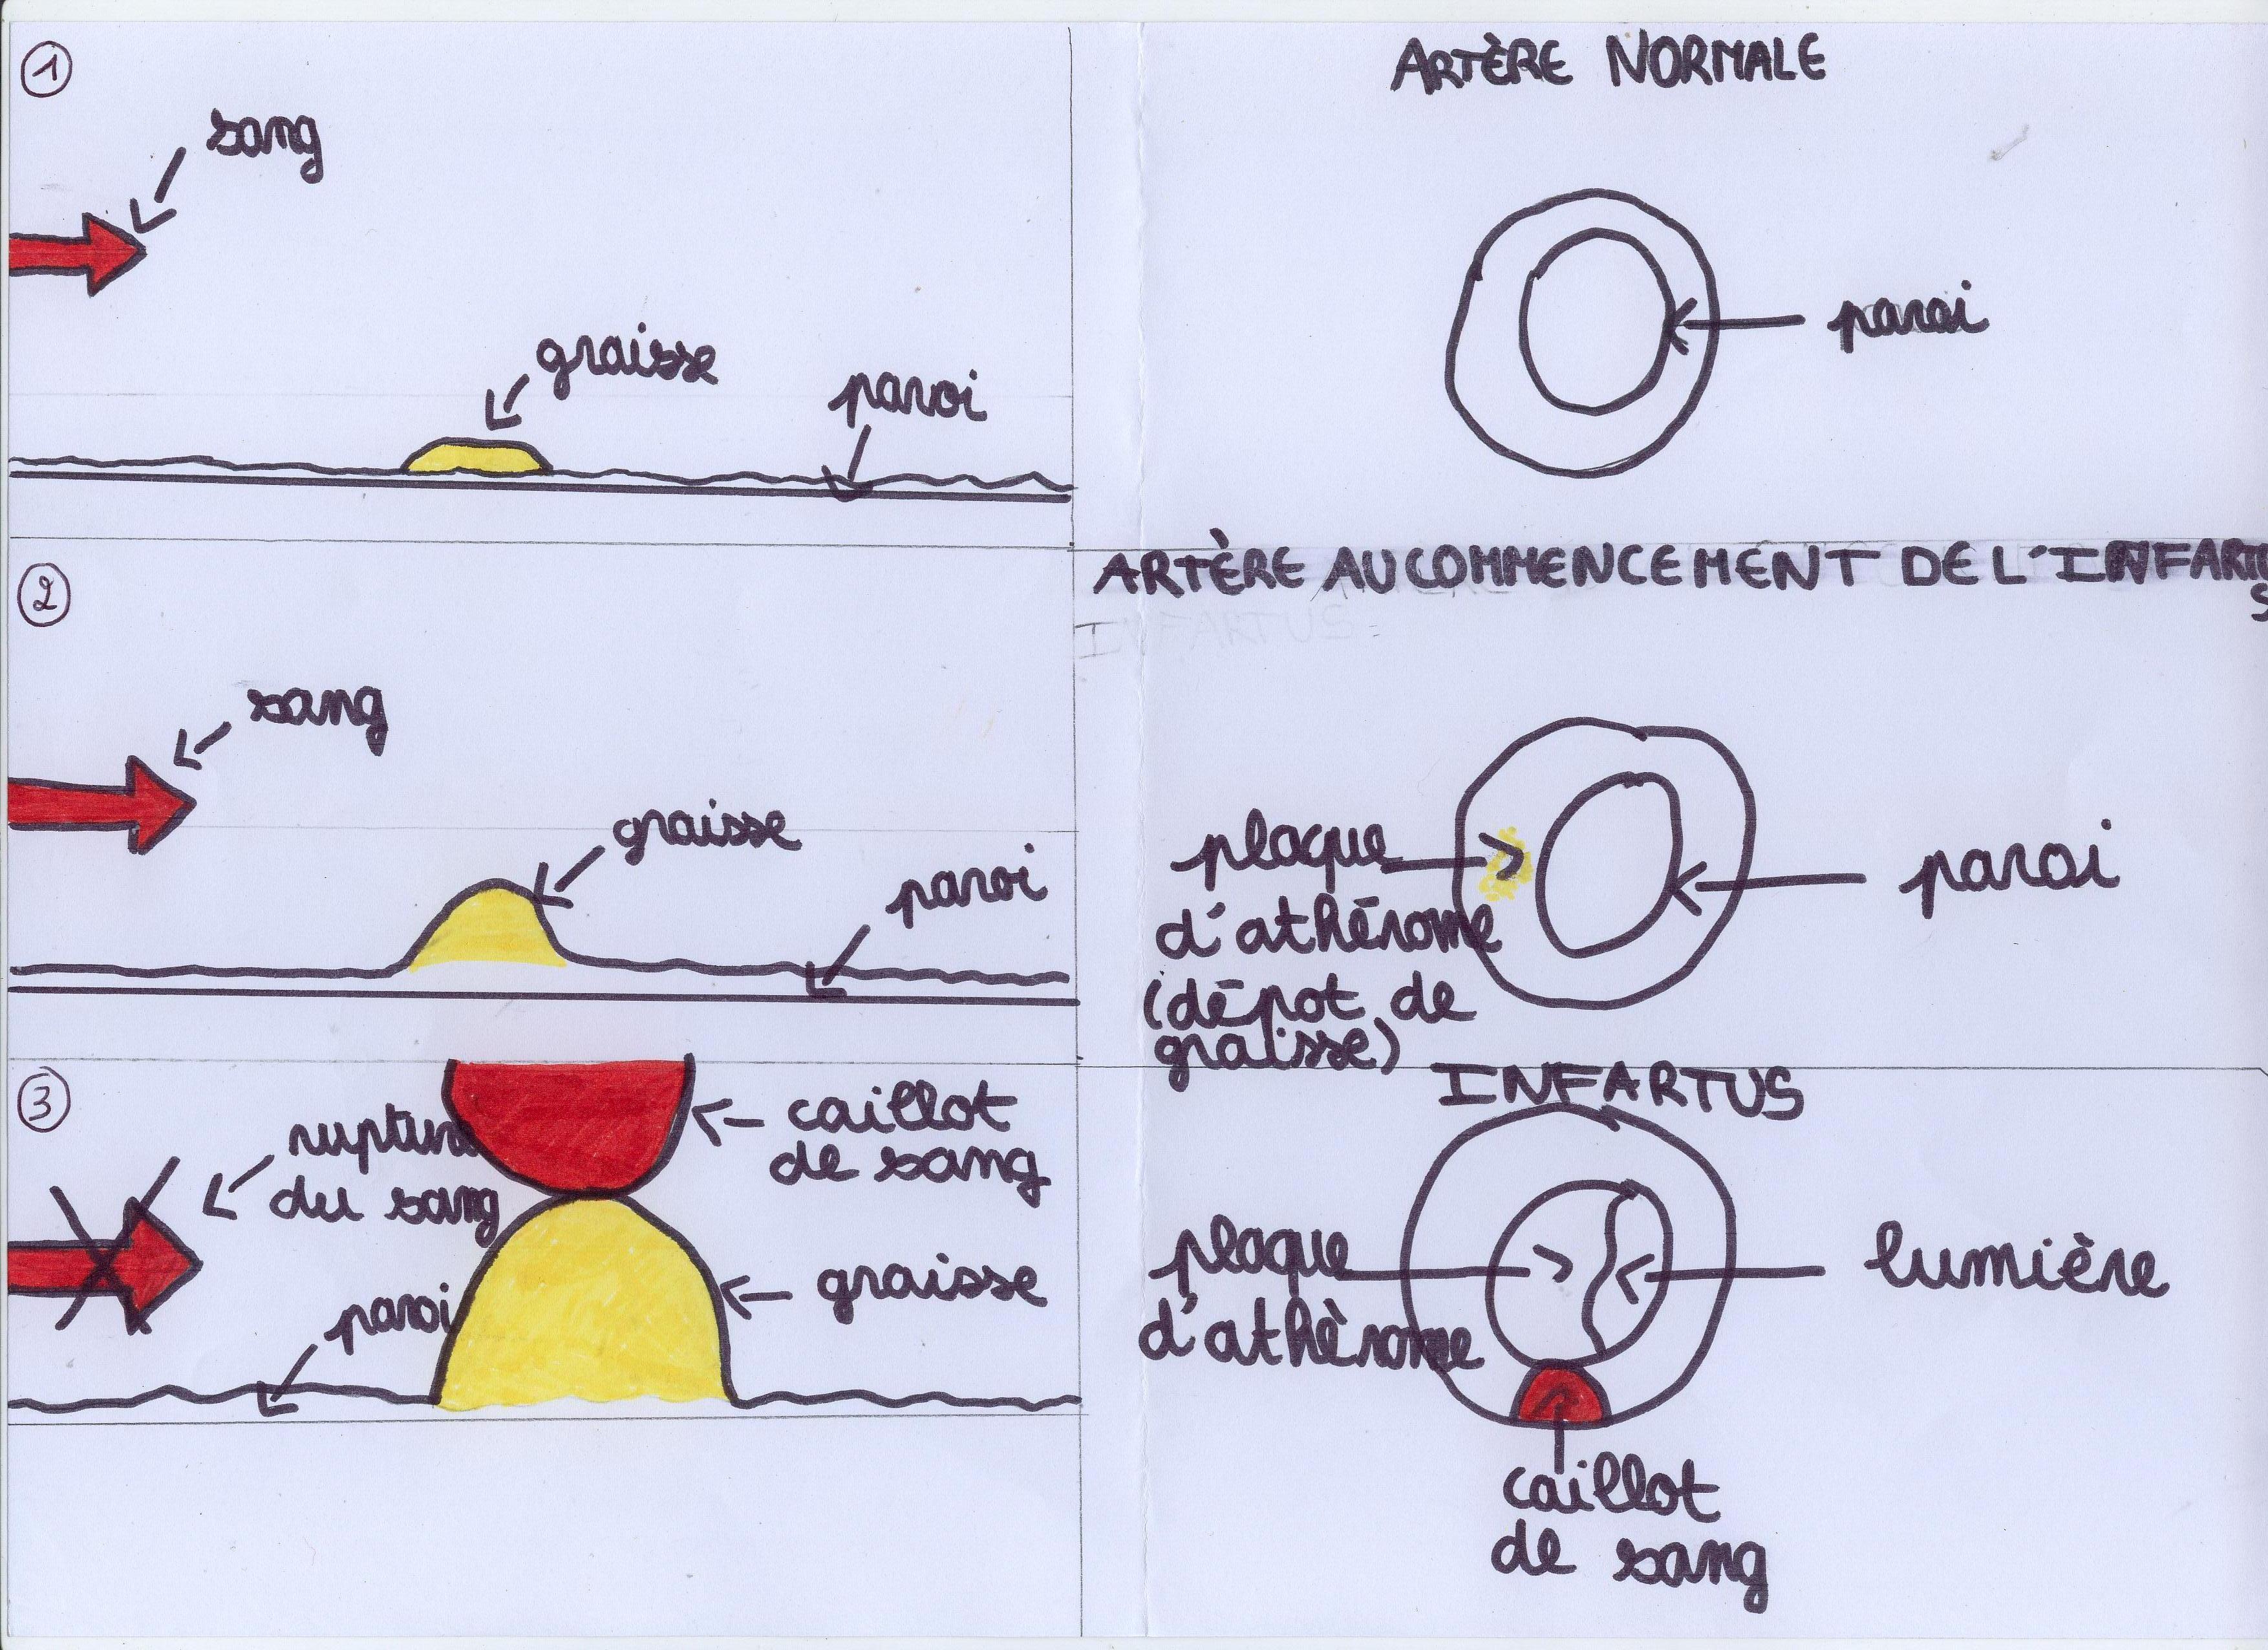 1
sang
graisse
paroi
ARTÈRE NORMALE
paroi
2
sang
graisse
paroi
ARTÈRE AU COMMENCEMENT DE L'INFARTU
S
INFARTUS
plaque
d'athérome
(dépot de
graisse)
paroi
3
rupture
du sang
caillot
de sang
paroi
graisse
INFARTUS
plaque
d'athèrome
lumière
caillot
de sang